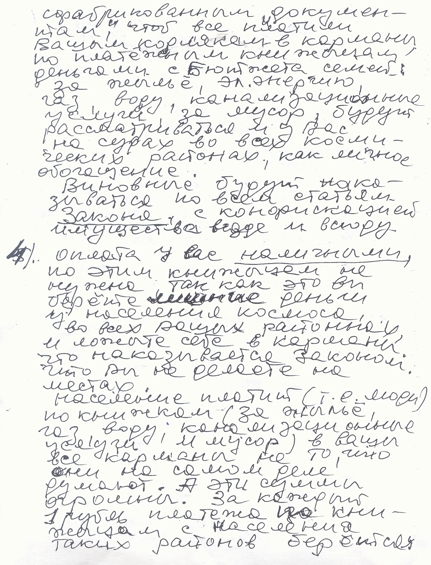 сфабрикованным докумен-
там, чтоб все платили
Вашым кормлякам в карманы
по платежным книжыцам,
деньгами с Бютжета семей:
за жыльё, эл.энергию,
газ воду, канализационные
услуги, за мусор, будут
рассматриваться и у Вас
на судах во всех косми-
ческих районах, как личное
обогощение.
Виновные будут нака-
зываться по всем статьям
Закона, с конфискацией
имущества везде и всюду
4). оплата у вас наличными,
по этим книжыцам не
нужна так как это вы
берёте деньги
у населения космоса,
во всех ващых районнах
и ложыте себе в карманы
что наказывается Законом.
Что Вы не делаете на
местах.
население платит (т.е. люди)
по книжкам (за жыльё,
газ воду, канализационные
услуги, и мусор) в вашы
все карманы не то, что
они на самом деле
думают. А эти суммы
огромны. За каждый
1 рубль платежа по кни-
жыцам с населения
таких районов берётся